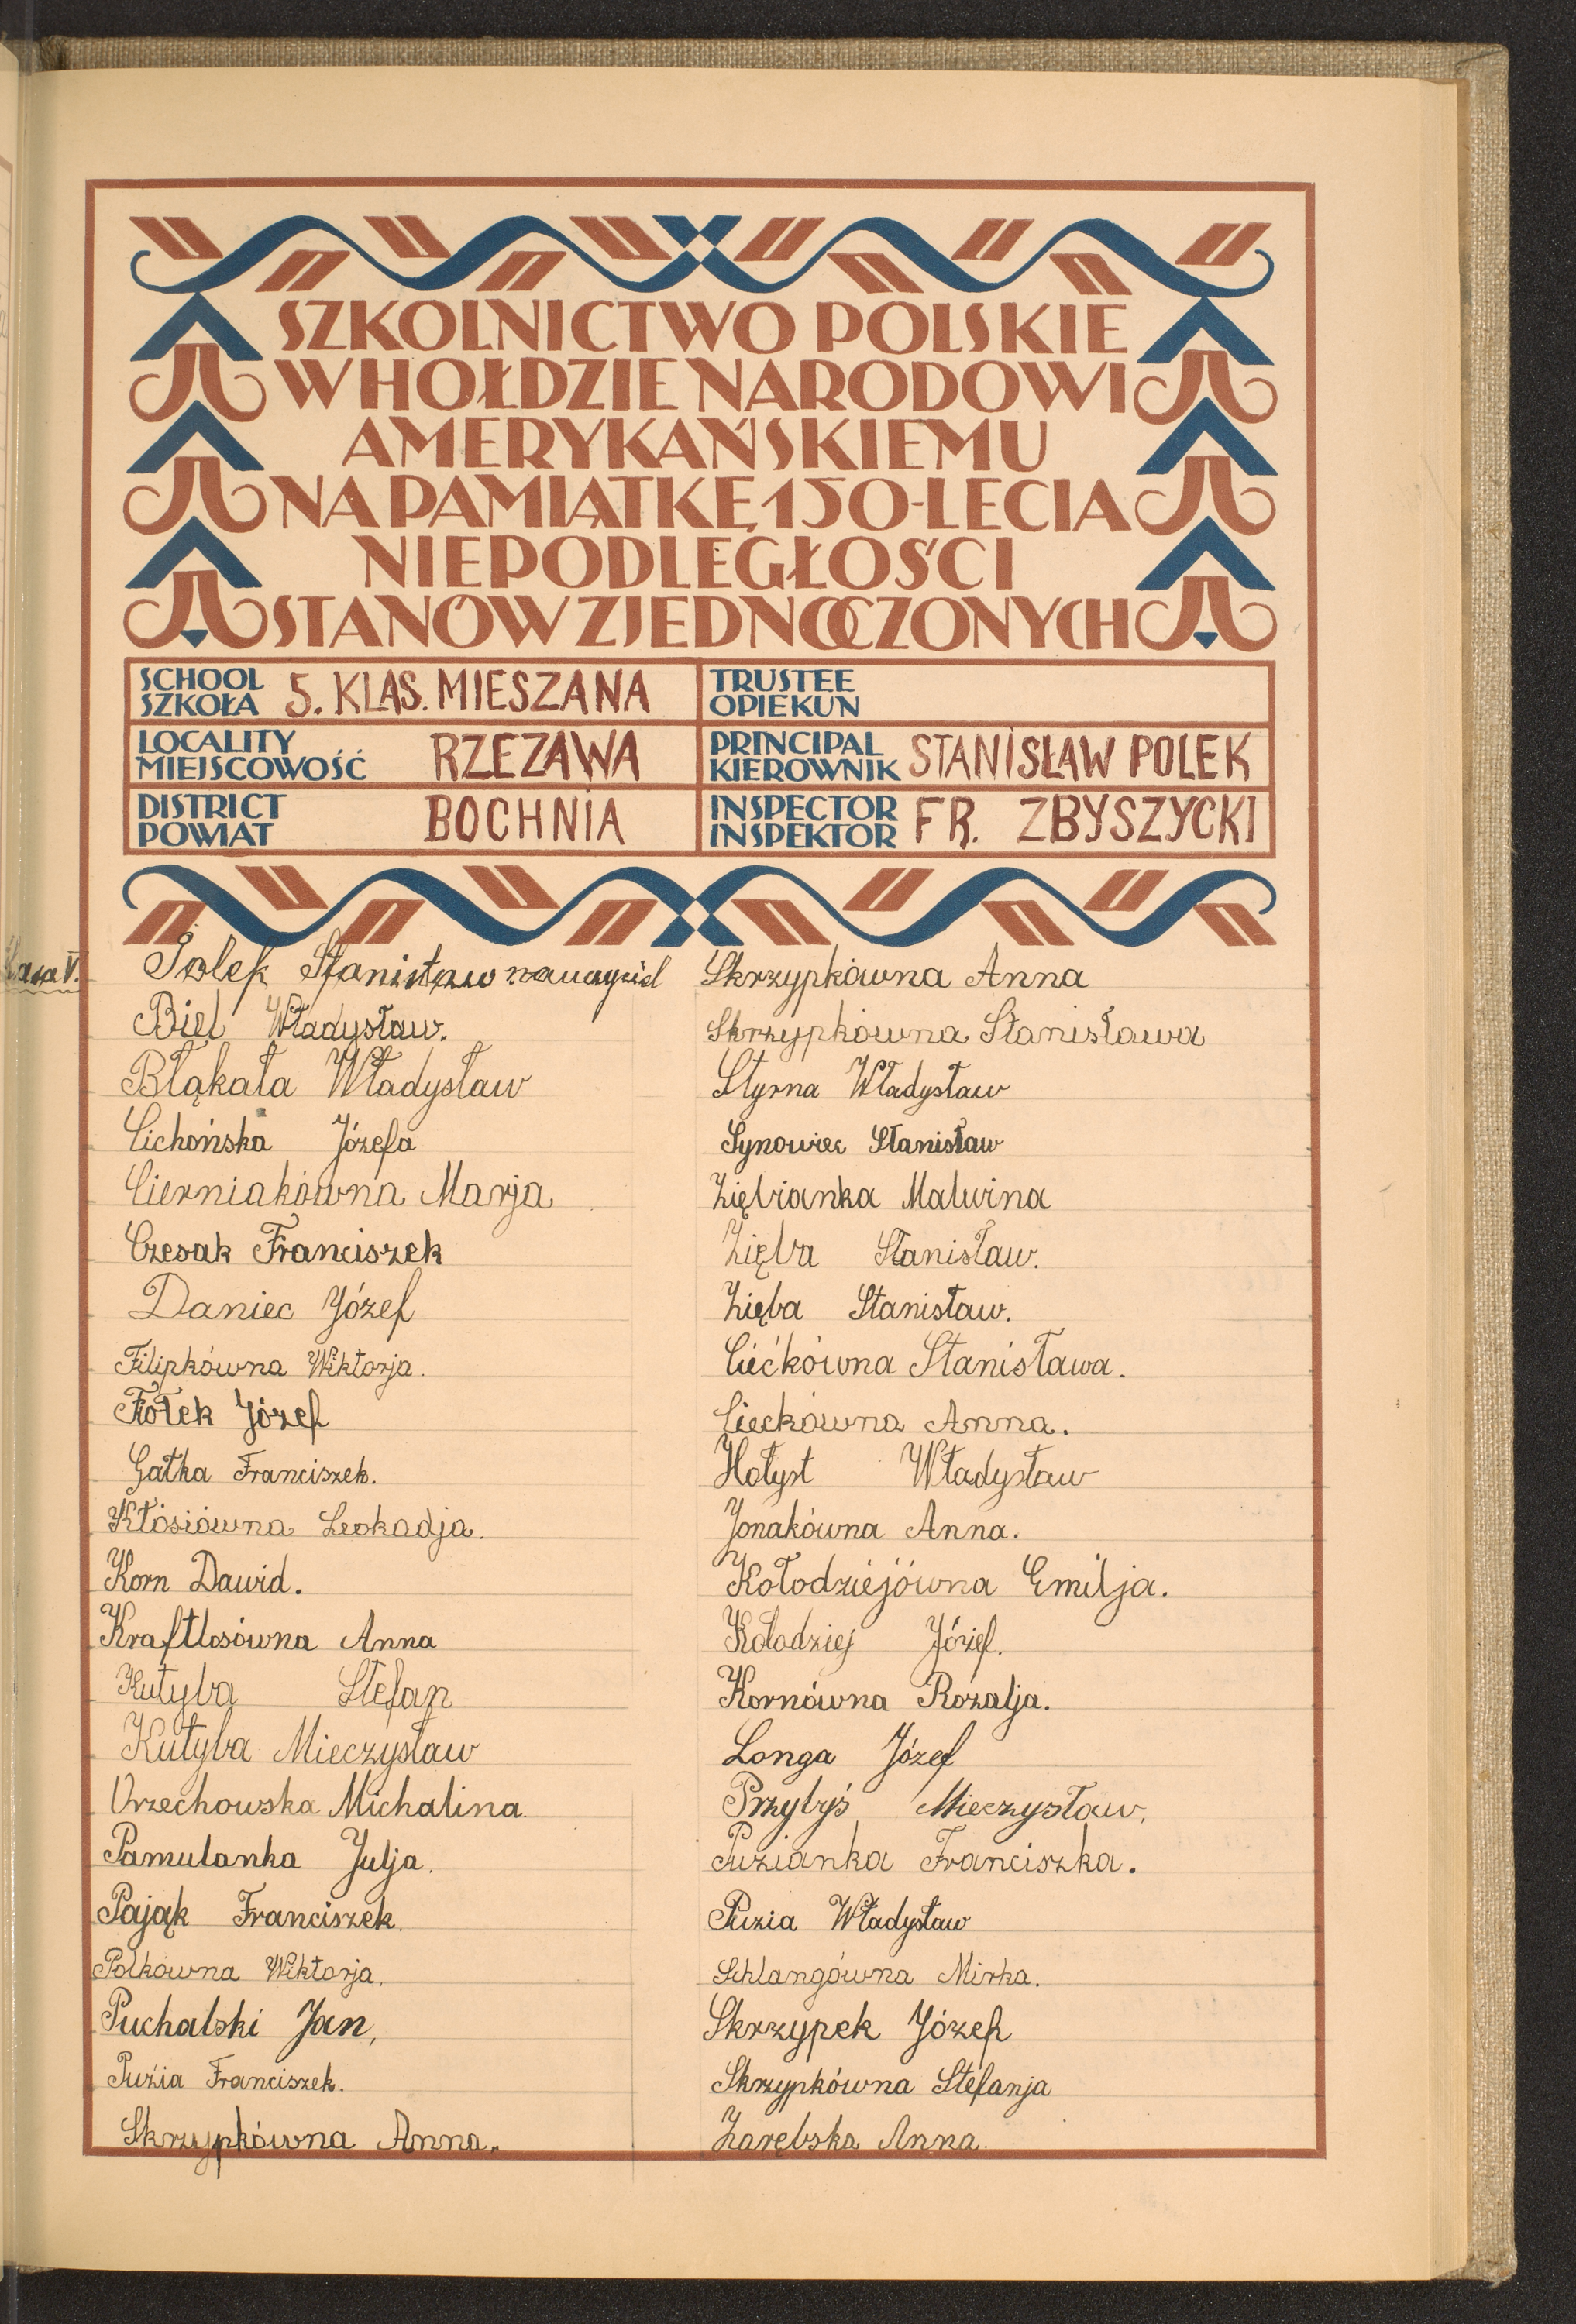 SZKOLNICTWO POLSKIE
W HOŁDZIE NARODOWI
AMERYKAŃSKIEMU
NA PAMIĄTKĘ 150-LECIA
NIEPODLEGŁOŚCI
STANÓW ZJEDNOCZONYCH
SCHOOL
SZKOŁA 5. KLAS. MIESZANA
TRUSTEE
OPIEKUN
LOCALITY
MIEJSCOWOŚĆ RZEZAWA
PRINCIPAL
KIEROWNIK STANISŁAW POLEK
DISTRICT
POWIAT BOCHNIA
INSPECTOR
INSPEKTOR FR. ZBYSZYCKI
Klasa V.
Polek Stanisław nauczyciel
Biel Władysław.
Błąkała Władysław
Cichońska Józefa
Cierniakówna Marja
Czesak Franciszek
Daniec Józef
Filipkówna Wiktorja.
Fiołek Józef
Gałka Franciszek.
Kłósiówna Leokadja.
Korn Dawid.
Kraftlosówna Anna
Kutyba Stefan
Kutyba Mieczysław
Orzechowska Michalina.
Pamulanka Julja.
Pająk Franciszek.
Polkówna Wiktorja.
Puchalski Jan,
Puzia Franciszek.
Skrzypkówna Anna.
Skrzypkówna Anna
Skrzypkówna Stanisława
Styrna Władysław
Synowiec Stanisław
Ziębianka Malwina
Zięba Stanisław.
Zięba Stanisław.
Ciećkówna Stanisława.
Cieckówna Anna.
Hołyst Władysław
Jonakówna Anna.
Kołodziejówna Emilja.
Kołodziej Józef.
Kornówna Rozalja.
Longa Józef
Przybyś Mieczysław.
Puzianka Franciszka.
Puzia Władysław
Schlangówna Mirka.
Skrzypek Józef
Skrzypkówna Stefanja
Zarębska Anna.